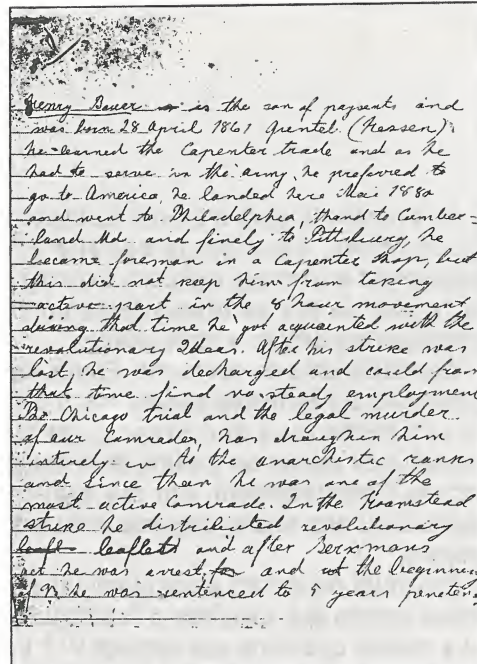 Henry Bauer is the son of paysents and
was born 28 April 1861 Gruntel. (Hessen).
he learned the Capenter trade and as he
had to serve in the army, he preferred to
go to America, he landed here Mai 1880
and went to Philadelphia, thand to Cumber=
land Md. and finely to Pittsburg, he
became foreman in a Capenter shop, but
this did not keep him from taking
active part in the 8 hour movement
during that time he got acquainted with the
revolutionary Ideas. After his strike was
lost, he was decharged and could from
that time find no steady employment
The Chicago trial and the legal murder
of our Comrades, has draughen him
intirely in to the anarchistic ranks
and since than he was one of the
most active Comrade. In the Hoamstead
strike he distributed revolutionary
leaflets and after Berkmans
act he was arrest, and at the beginning
of 93 he was sentenced to 5 years peneten